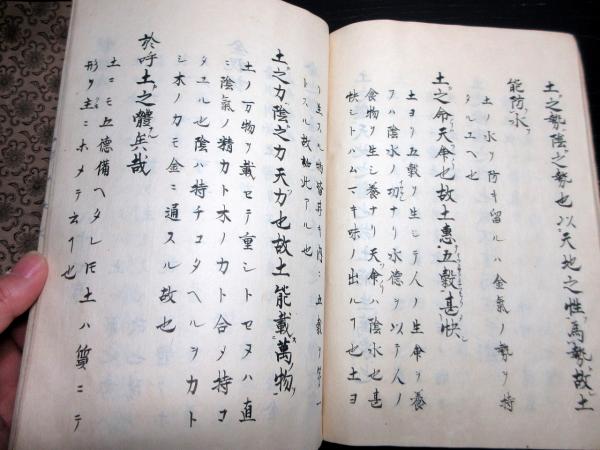 土之勢陰之勢也以天地之性為勢故土
能防水
土ノ水ヲ防キ留ルハ金氣ノ勢ヲ持
タルユヘ也
土之命天命也故土惠五穀甚快
土ヨリ五穀ヲ生シテ人ノ生命ヲ養
フハ陰水ノ功ナリ水德ヲ以テ人ノ
食物ヲ生シ養ナリ天命ハ陰水也甚
快シトハムマキ味ノ出ルヿ也土ヨ
リ生スル物
トスル故如此アル也
土之力陰之力天力也故土能載萬物
土ノ万物ヲ載セテ重シトセヌハ直
ニ陰氣ノ精力ト木ノカト合タ持コ
タエル也陰ハ持チコタヘルヲカト
シ木ノカモ金ニ通スル故也
於呼土之體全哉
土ニモ五德備ヘタレ𪜈土ハ質ニテ
形ヲ主ニホメテ云フヿ也